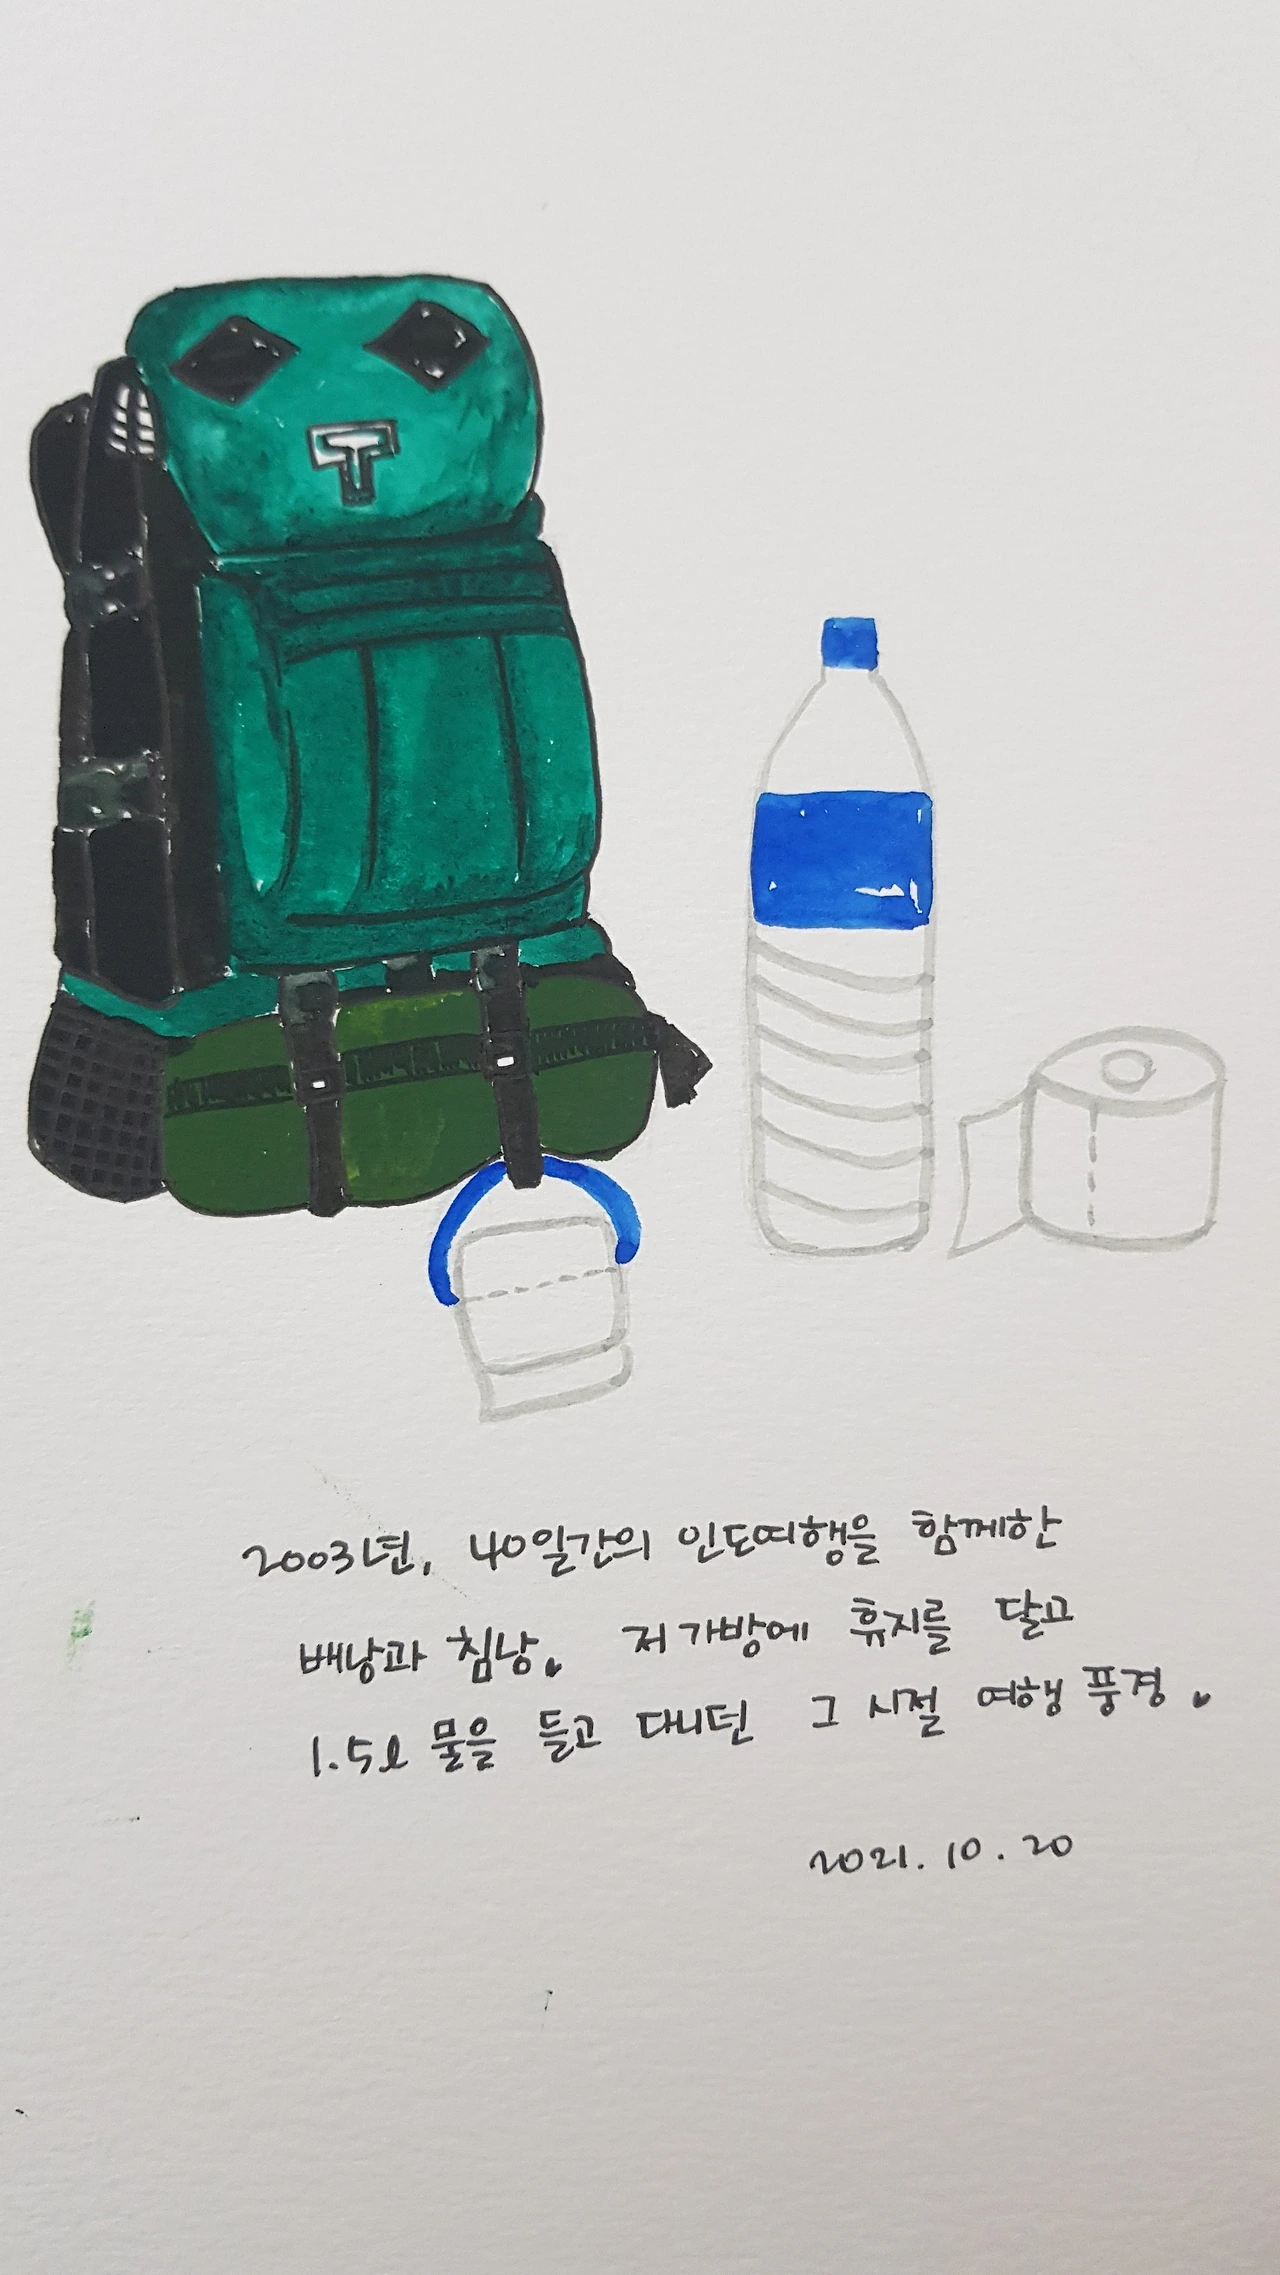 T
2003년, 40일간의 인도여행을 함께한
배낭과 침낭. 저 가방에 휴지를 달고
1.5ℓ 물을 들고 다니던 그 시절 여행 풍경.
2021. 10. 20